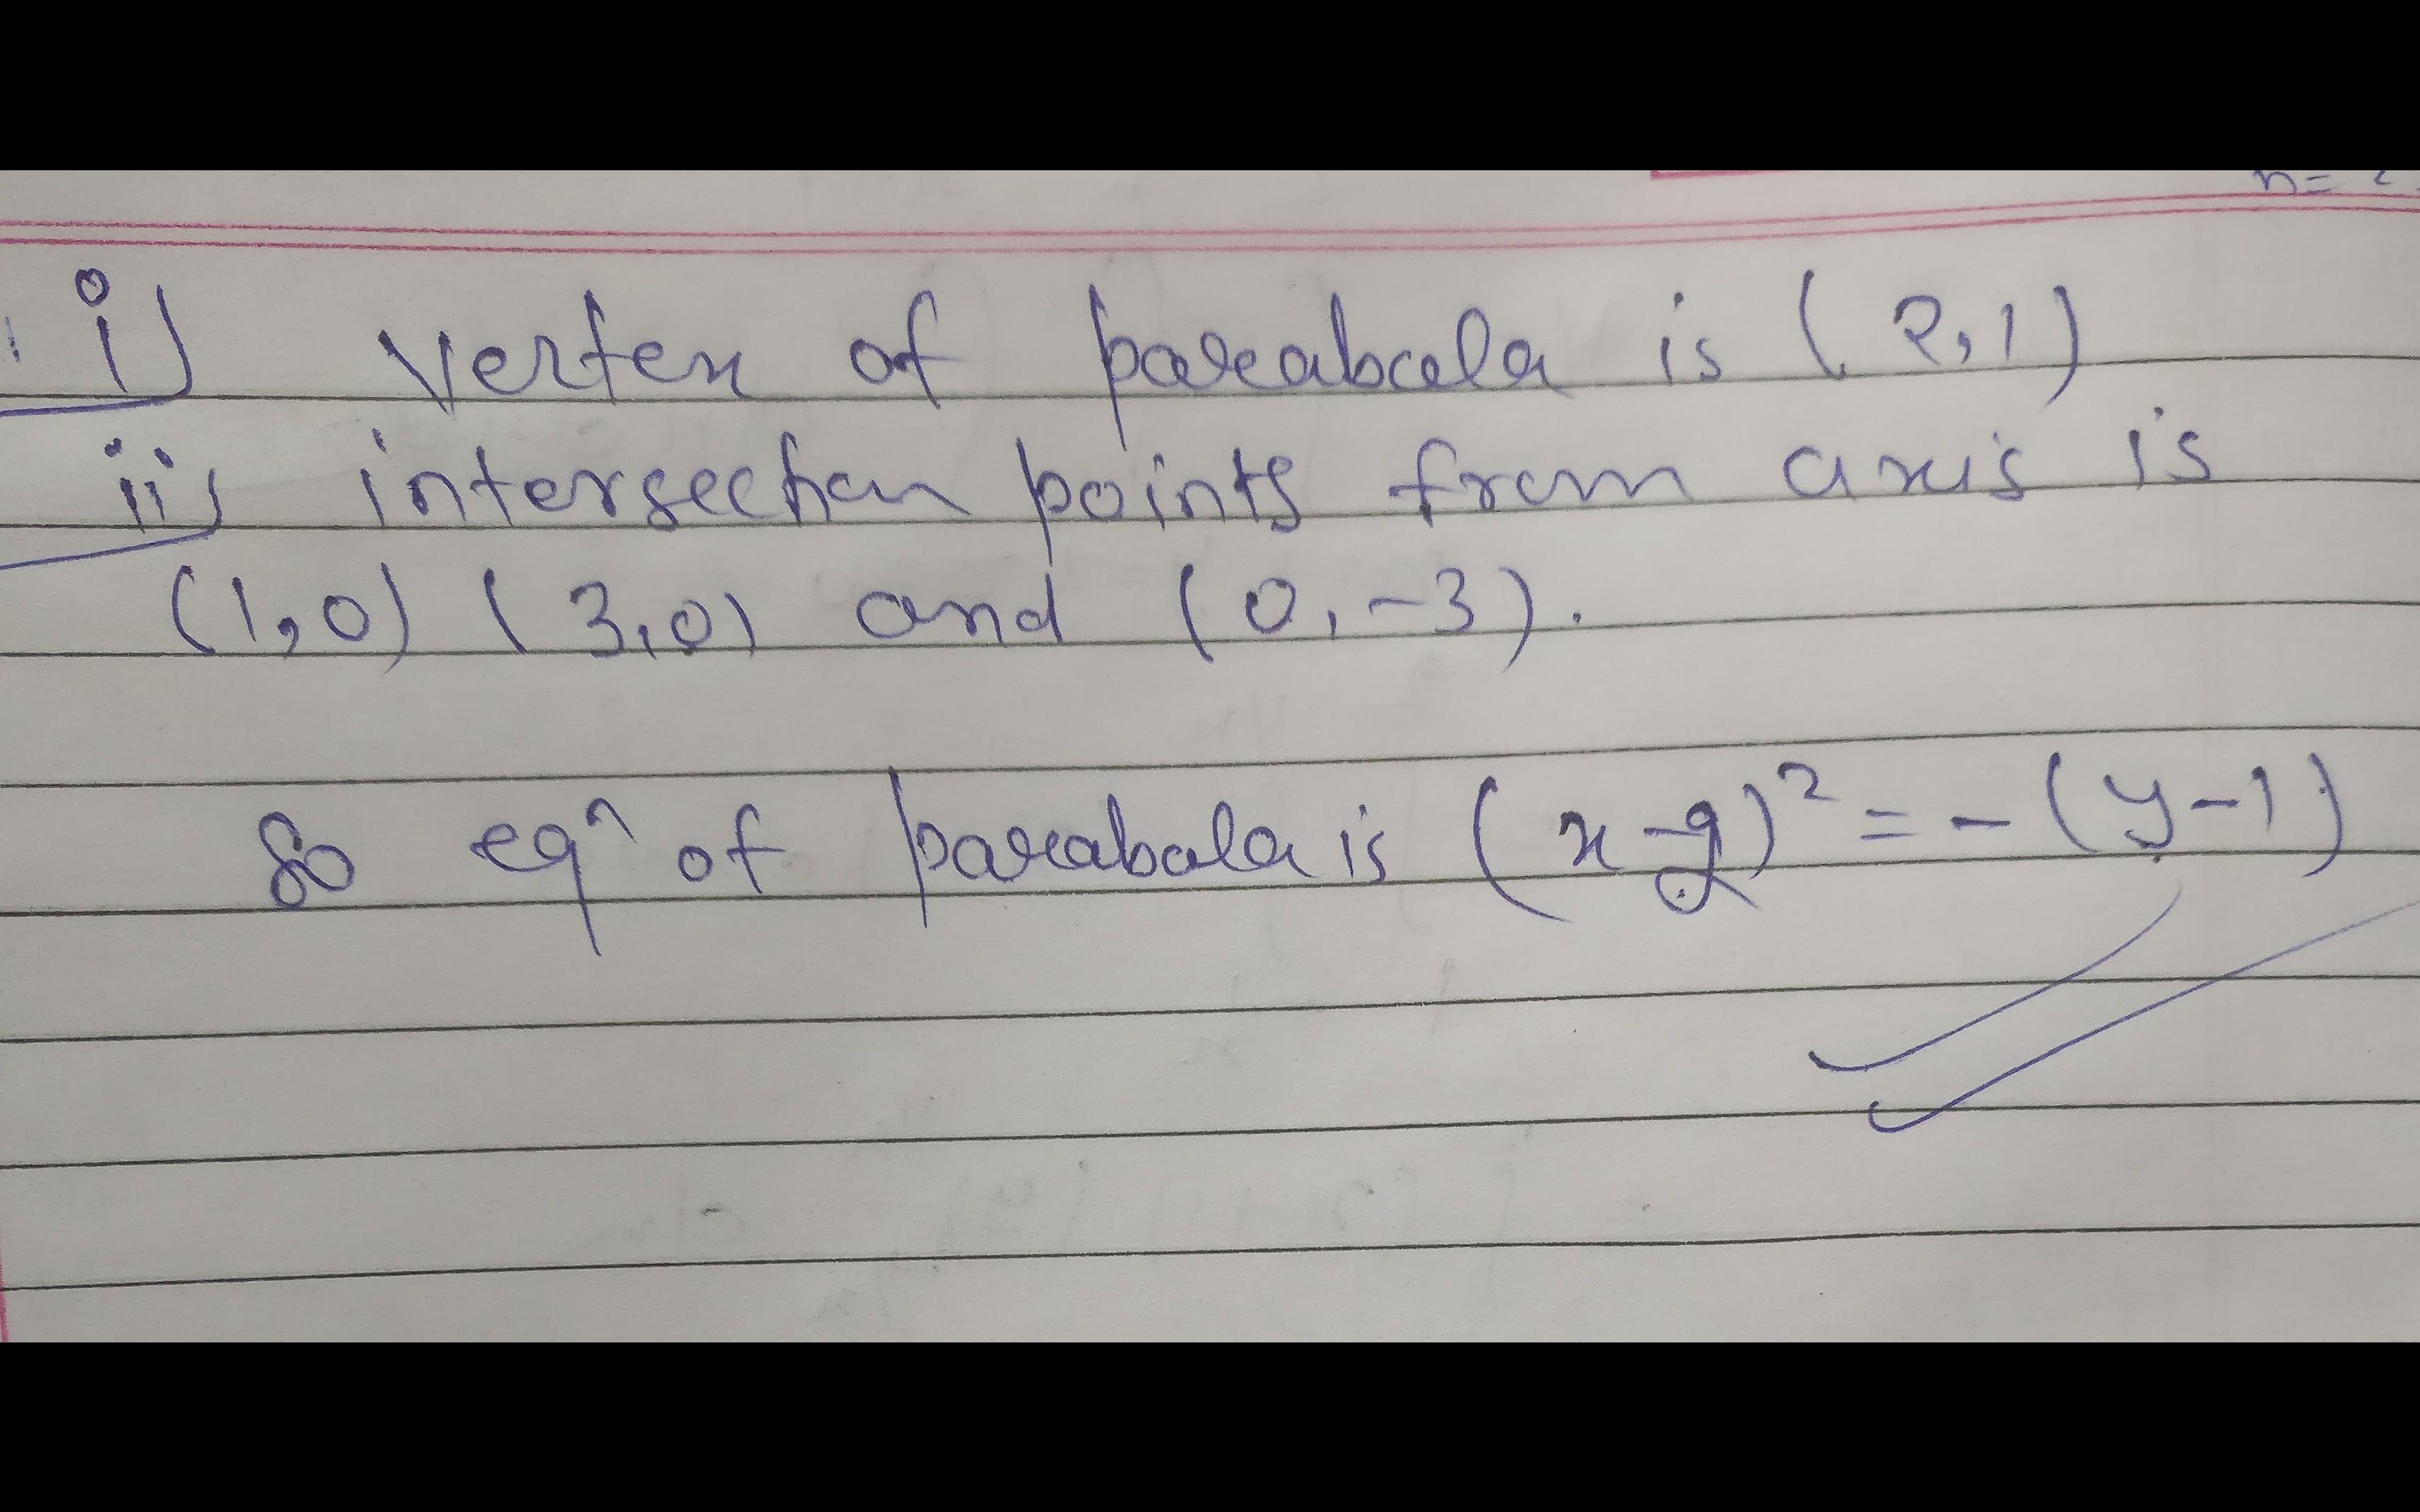 n=
i) vertex of parabola is (2,1)
ii) intersection points from axis is
(1,0) (3,0) and (0,-3).
So eqⁿ of parabola is (x-2)² = -(y-1)